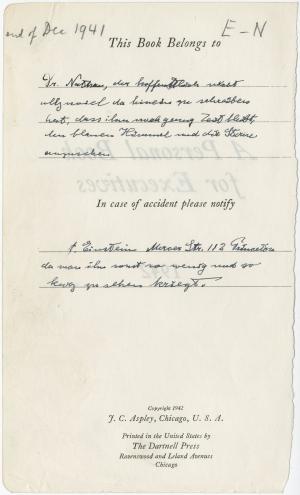 end of Dec 1941
E-N
This Book Belongs to
Dr. Nathan, der hoffentlich nicht
allzuviel da hinein zu schreiben
hat, dass ihm noch genug Zeit bleibt
den blauen Himmel und die Sterne
anzusehen.
A Personal Book
for Executives
1942
In case of accident please notify
Einstein Mercer Str. 112 Princeton
da man ihn sonst so wenig und so
kurz zu sehen kriegt.
Copyright 1942
J. C. Aspley, Chicago, U. S. A.
Printed in the United States by
The Dartnell Press
Ravenswood and Leland Avenues
Chicago